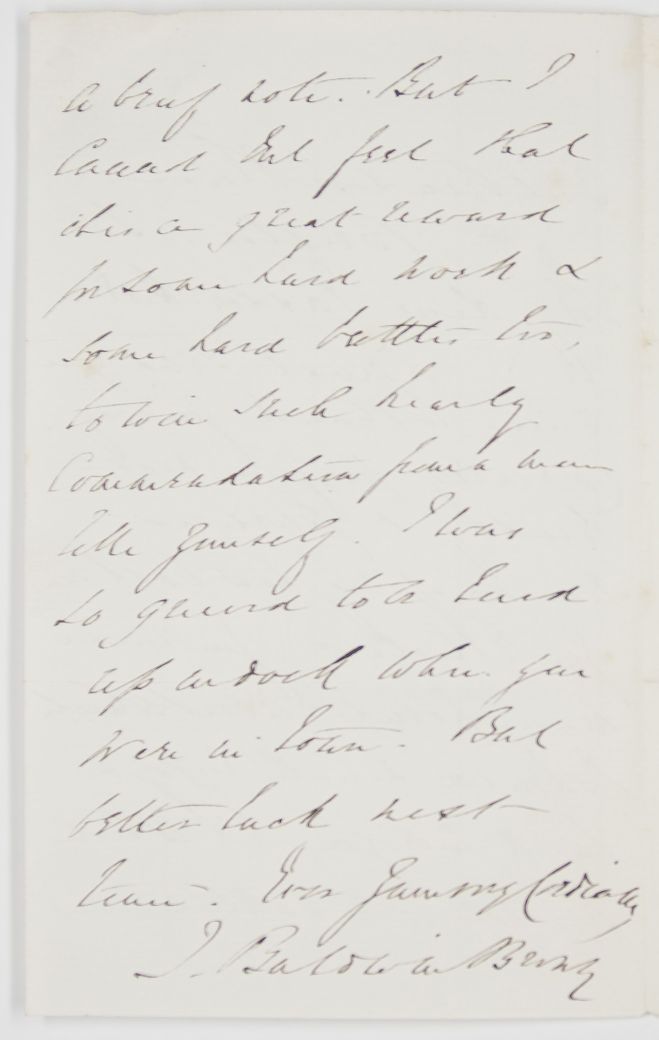 a brief note. But I
cannot but feel that
this is a great reward
for some hard work &
some hard battles too,
to win such hearty
commendation from a man
like yourself. I was
so grieved to be
up in dock when you
were in town. But
better luck next
time. Ever yours very cordially
J. Baldwin Brown